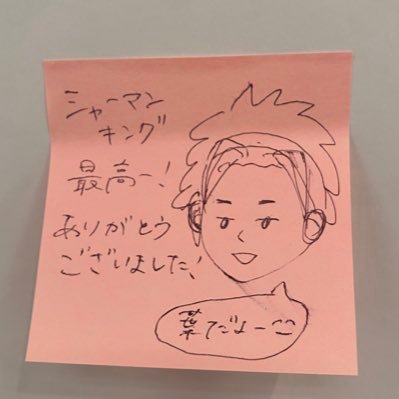 シャーマン
キング
最高ー!
ありがとう
ございました!
葉だよー